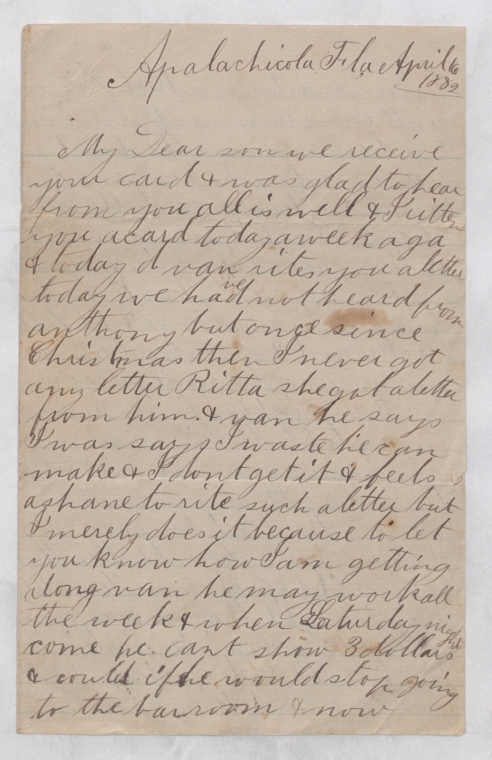 Apalachicola Fla April 16
1882
My Dear son we receive
your card & was glad to hear
from you all is well & I ritten
you a card today a week aga
& today d van rites you a letter
today we hadve not heard from
anthony but once since
Christmas then I never got
any letter Ritta she got a letter
from him & van he says
I was says I waste he can
make & I dont get it & feels
ashane to rite such a letter but
I merely does it because to let
you know how I am getting
along van he may work all
the week & when Saturday night
come he cant show 3 dollars
& could if he would stop going
to the barroom & now